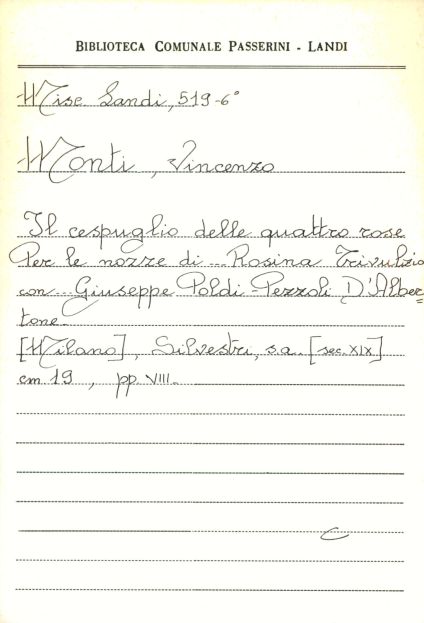 BIBLIOTECA COMUNALE PASSERINI - LANDI
Misc. Landi, 519-6°
Monti, Vincenzo
Il cespuglio delle quattro rose
Per le nozze di ... Rosina Trivulzio
con ... Giuseppe Poldi-Pezzoli D'Alber=
tone.
[Milano], Silvestri, s.a. [sec. XIX]
cm 19, pp. VIII.
C